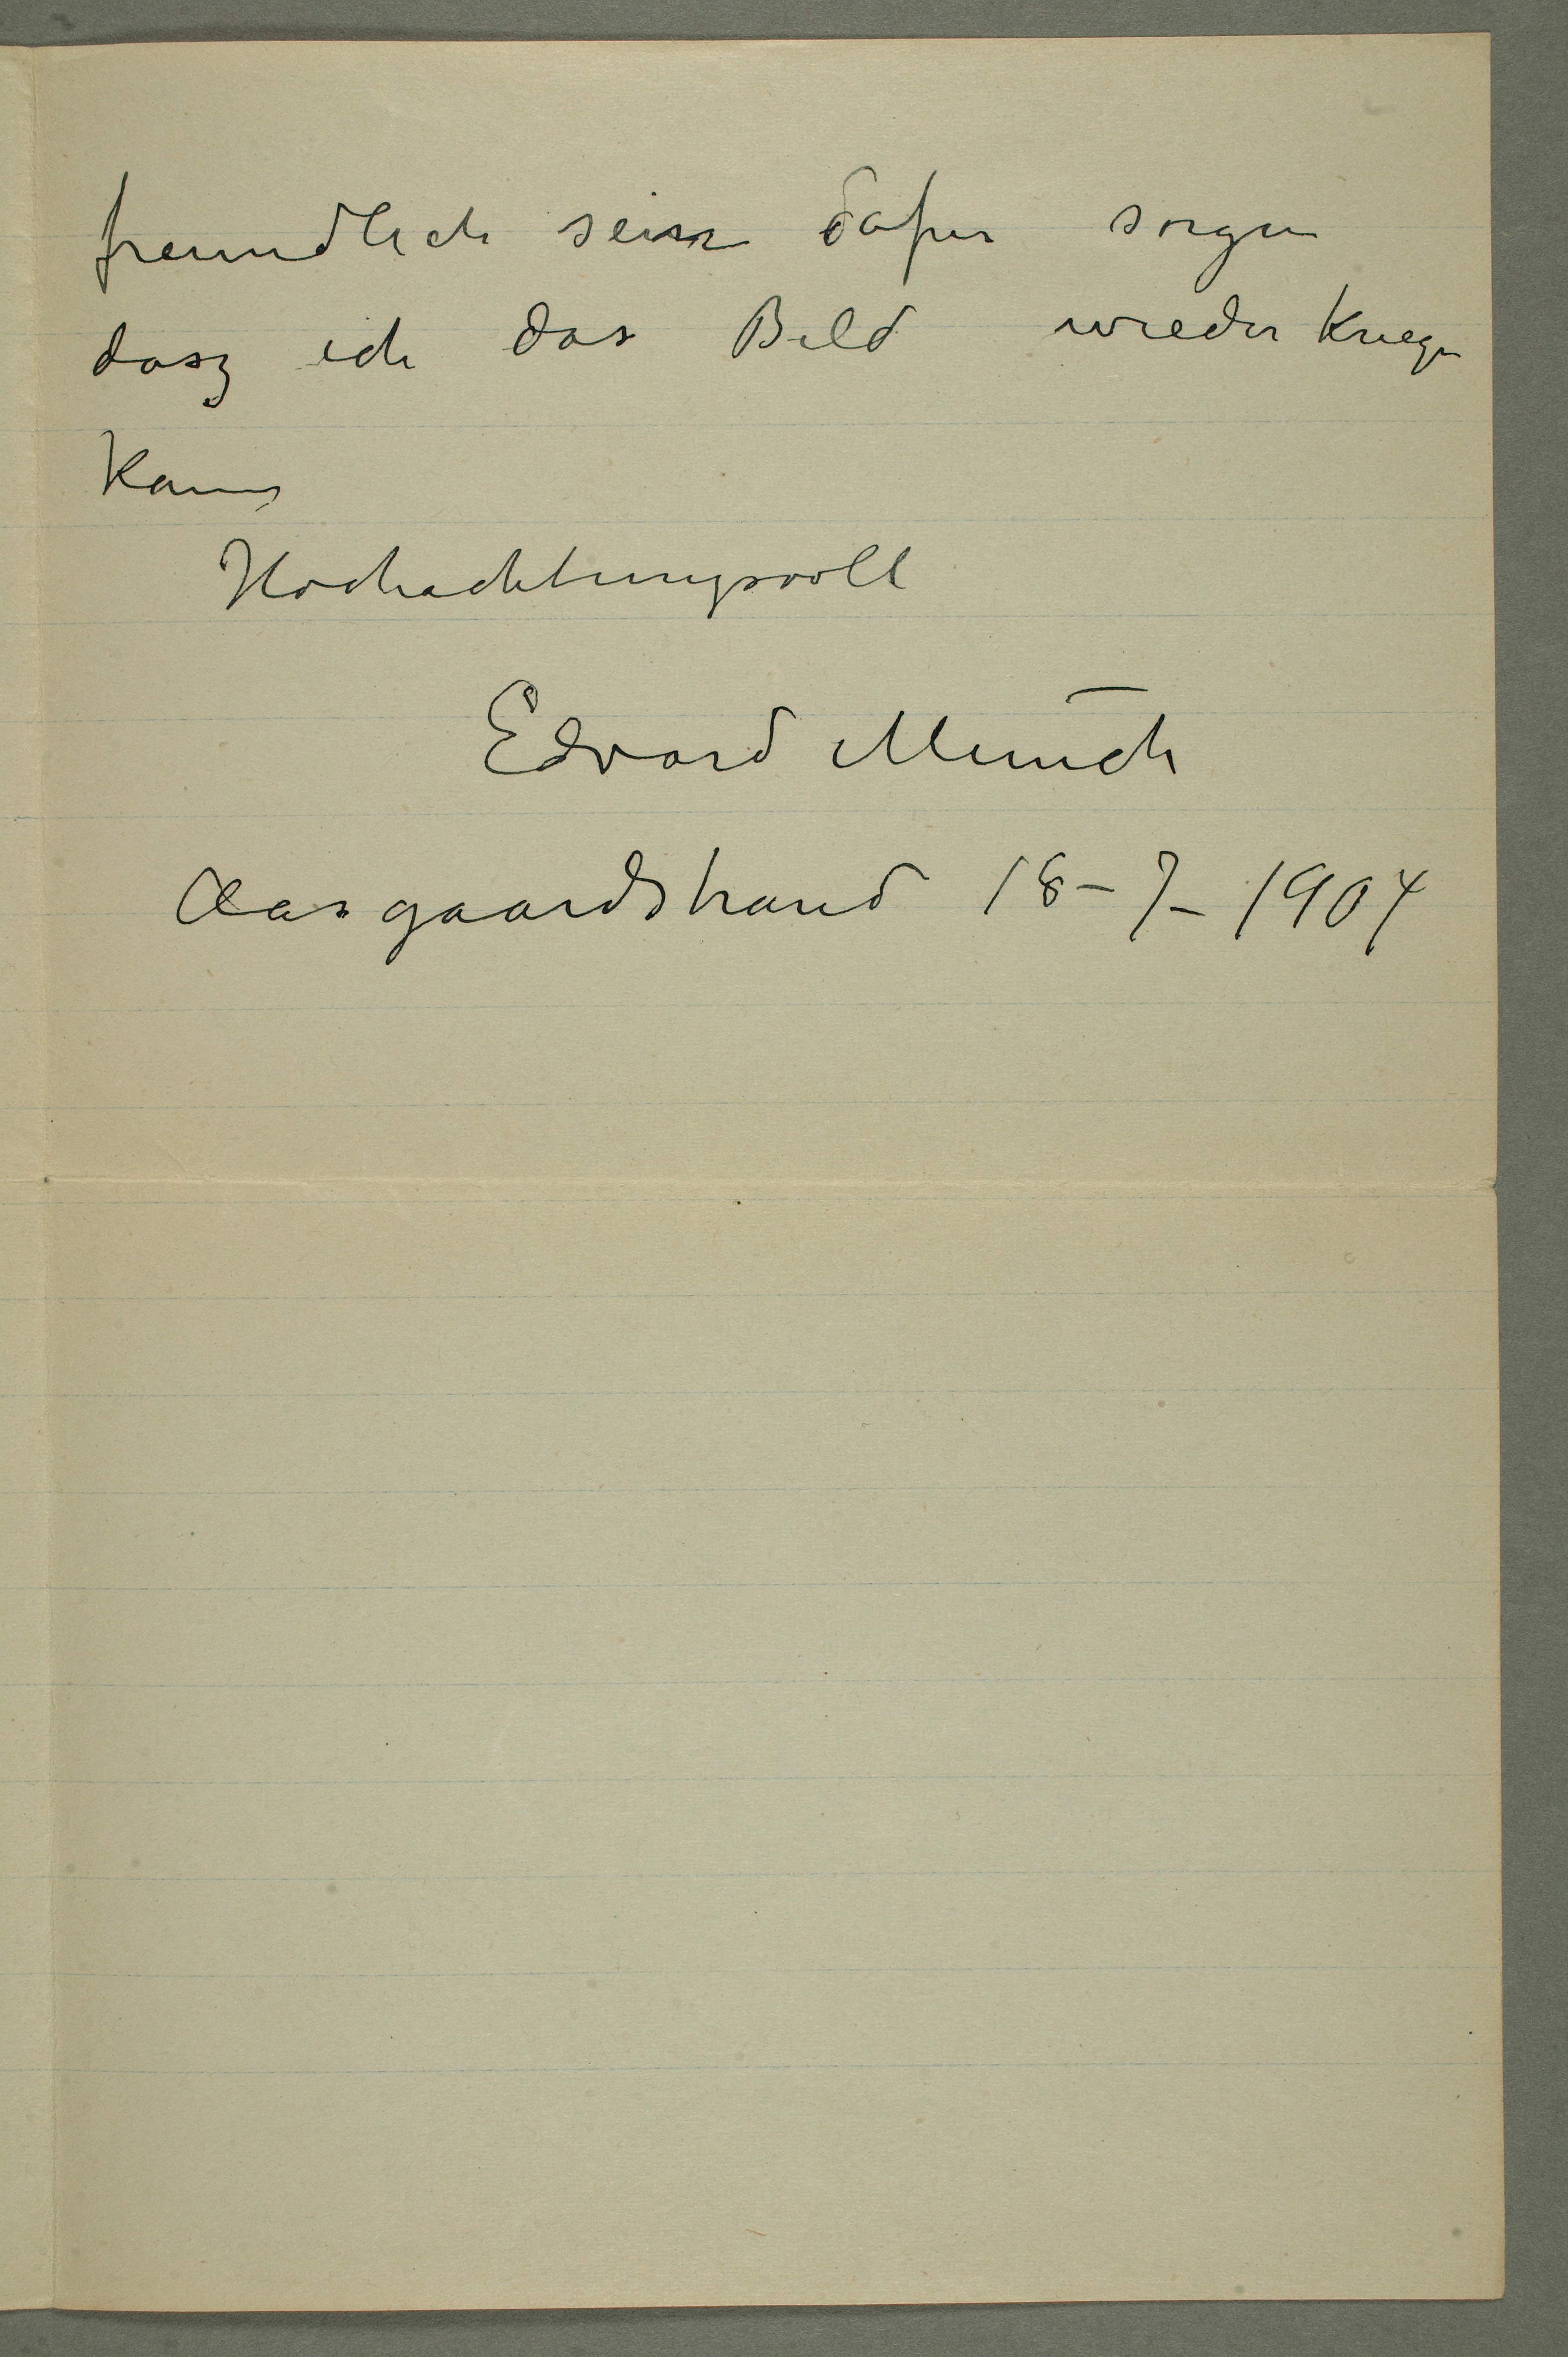 freundlich sein dafur sorgen
dasz ich das Bild wieder kriegen
kann
Hochachtungsvoll
Edvard Munch
Aasgaardstrand 18-7-1904